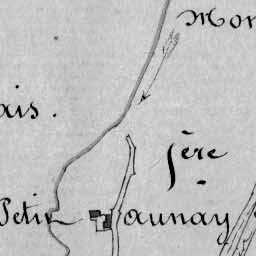 Mon
ais.
fère
Petit Launay